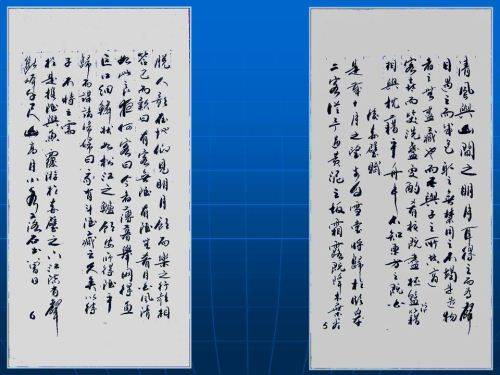 清風與山間之明月耳得之而為聲
目遇之而成色取之無禁用之不竭是造物
者之無盡藏也而吾與子之所共適
客喜而笑洗盞更酌肴核既盡杯盤狼籍
相與枕藉乎舟中不知東方之既白
後赤壁賦
是歲十月之望步自雪堂將歸於臨皋
二客從予過黃泥之坂霜露既降木葉盡
5
脫人影在地仰見明月顧而樂之行歌相
答已而歎曰有客無酒有酒無肴月白風清
如此良夜何客曰今者薄暮舉網得魚
巨口細鱗狀如松江之鱸顧安所得酒乎
歸而謀諸婦婦曰我有斗酒藏之久矣以待
子不時之需
於是攜酒與魚復遊於赤壁之下江流有聲
斷岸千尺山高月小水落石出曾日
6